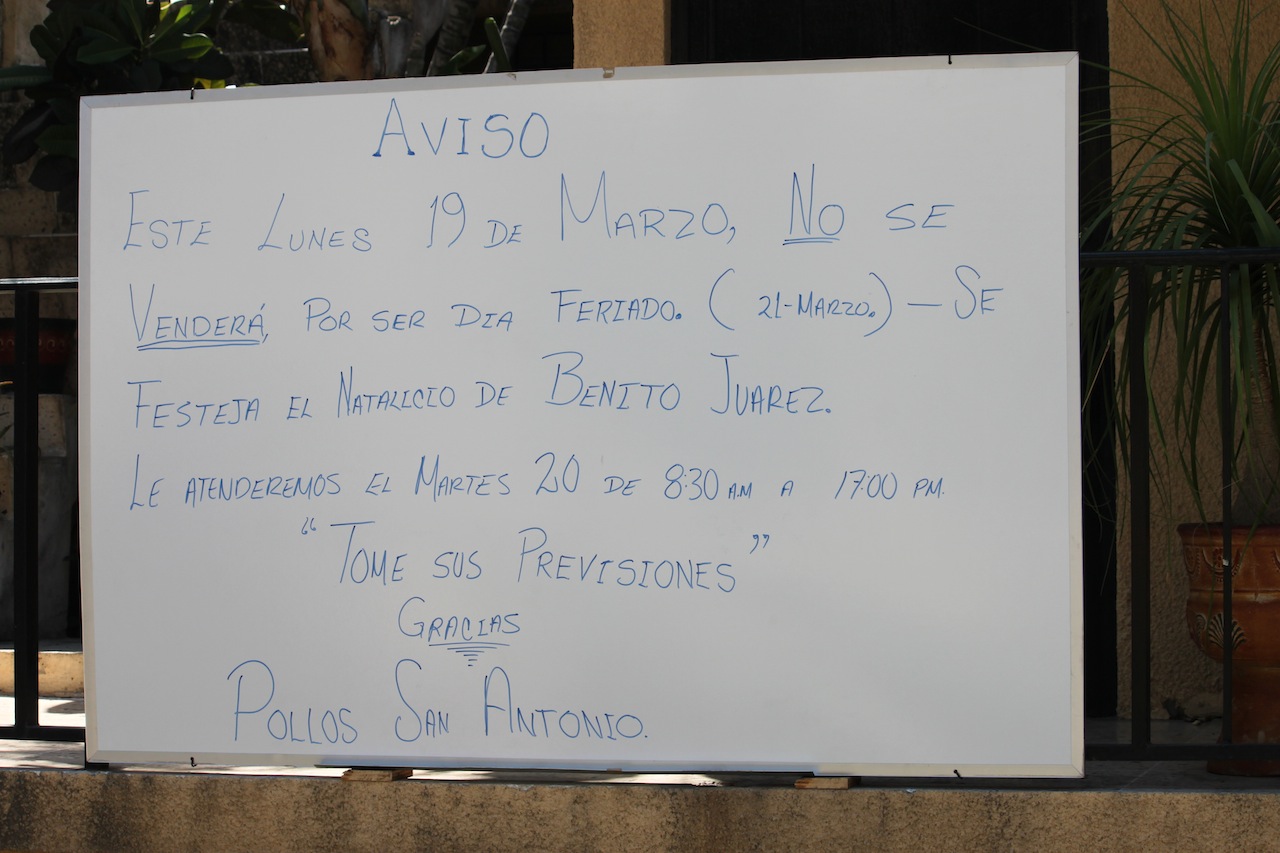 AVISO
ESTE LUNES 19 DE MARZO, NO SE
VENDERÁ, POR SER DIA FERIADO. (21-MARZO.) — SE
FESTEJA EL NATALICIO DE BENITO JUAREZ.
LE ATENDEREMOS EL MARTES 20 DE 8:30 A.M A 17:00 PM.
“TOME SUS PREVISIONES”
GRACIAS
POLLOS SAN ANTONIO.